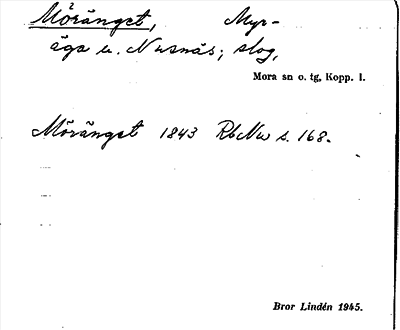 Möränget, Myr-
äga u. Nusnäs; slog,
Mora sn o. tg, Kopp. l.
Möränget 1843 RbNu s. 168.
Bror Lindén 1945.